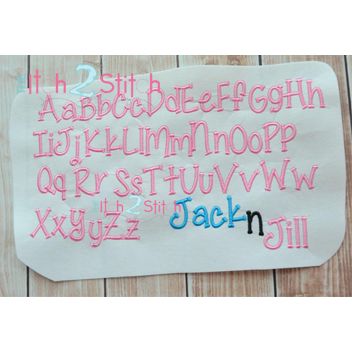 Itch 2 Stitch
AaBbCcDdEeFfGgHh
IiJjKkLlMmNnOoPp
QqRrSsTtUuVvWw
Itch 2 Stitch
XxYyZz JacknJill